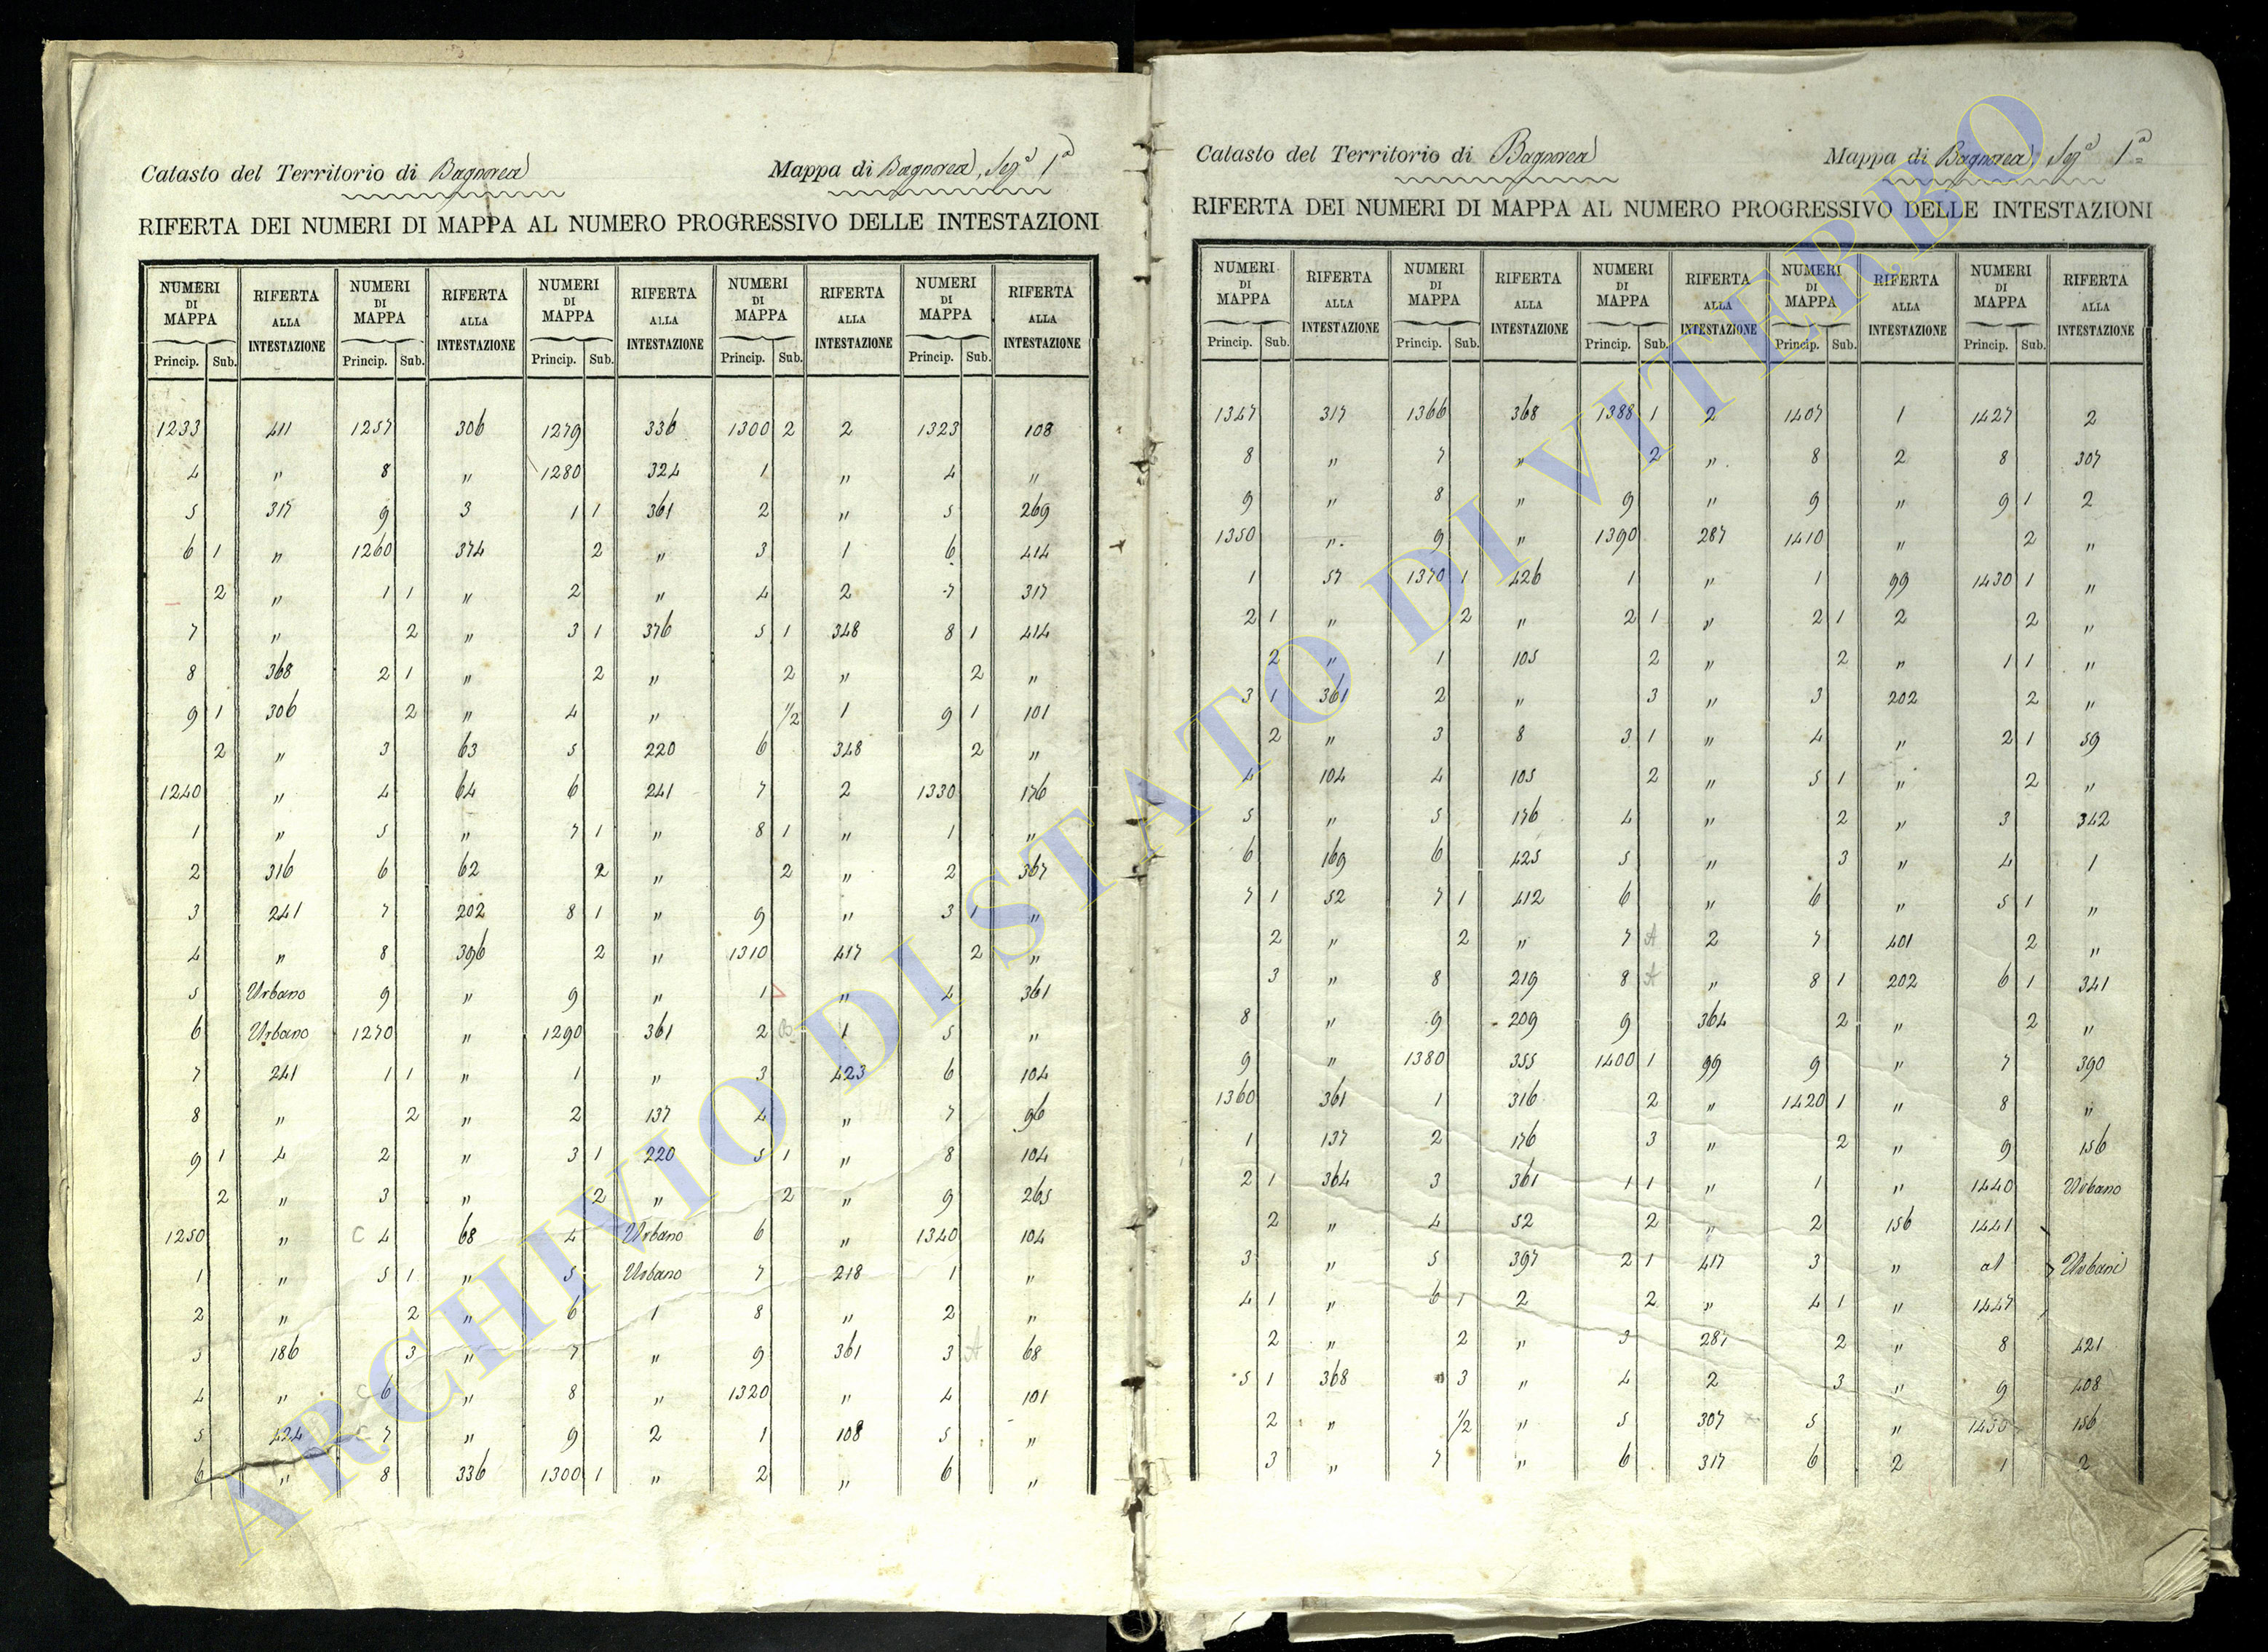 Catasto del Territorio di Bagnorea Mappa di Bagnorea, Sezᵉ 1ᵃ
RIFERTA DEI NUMERI DI MAPPA AL NUMERO PROGRESSIVO DELLE INTESTAZIONI
NUMERI DI MAPPA RIFERTA ALLA INTESTAZIONE NUMERI DI MAPPA RIFERTA ALLA INTESTAZIONE NUMERI DI MAPPA RIFERTA ALLA INTESTAZIONE NUMERI DI MAPPA RIFERTA ALLA INTESTAZIONE NUMERI DI MAPPA RIFERTA ALLA INTESTAZIONE
Princip. Sub. Princip. Sub. Princip. Sub. Princip. Sub. Princip. Sub.
1233 411 1257 306 1279 336 1300 2 2 1323 108
4 " 8 " 1280 324 1 " 4 "
5 317 9 3 1 1 361 2 " 5 269
6 1 " 1260 374 2 " 3 1 6 414
2 " 1 1 " 2 " 4 2 7 317
7 " 2 " 3 1 376 5 1 348 8 1 414
8 368 2 1 " 2 " 2 " 2 "
9 1 306 2 " 4 " 1/2 1 9 1 101
2 " 3 63 5 220 6 348 2 "
1240 " 4 64 6 241 7 2 1330 176
1 " 5 " 7 1 " 8 1 " 1 "
2 316 6 62 2 " 2 " 2 367
3 241 7 202 8 1 " 9 " 3 1 "
4 " 8 396 2 " 1310 417 2 "
5 Urbano 9 " 9 " 1 " 4 361
6 Urbano 1270 " 1290 361 2 B 1 5 "
7 241 1 1 " 1 " 3 423 6 104
8 " 2 " 2 137 4 " 7 96
9 1 4 2 " 3 1 220 5 1 " 8 104
2 " 3 " 2 " 2 " 9 265
1250 " C 4 68 4 Urbano 6 " 1340 104
1 " 5 1 " 5 Urbano 7 218 1 "
2 " 2 " 6 1 8 " 2 "
3 186 3 " 7 " 9 361 3 A 68
4 " C 6 " 8 " 1320 " 4 101
5 424 C 7 " 9 2 1 108 5 "
6 " 8 336 1300 1 " 2 " 6 "
Catasto del Territorio di Bagnorea Mappa di Bagnorea, Sezᵉ 1ᵃ
RIFERTA DEI NUMERI DI MAPPA AL NUMERO PROGRESSIVO DELLE INTESTAZIONI
NUMERI DI MAPPA RIFERTA ALLA INTESTAZIONE NUMERI DI MAPPA RIFERTA ALLA INTESTAZIONE NUMERI DI MAPPA RIFERTA ALLA INTESTAZIONE NUMERI DI MAPPA RIFERTA ALLA INTESTAZIONE NUMERI DI MAPPA RIFERTA ALLA INTESTAZIONE
Princip. Sub. Princip. Sub. Princip. Sub. Princip. Sub. Princip. Sub.
1347 317 1366 368 1388 1 2 1407 1 1427 2
8 " 7 " 2 " 8 2 8 307
9 " 8 " 9 " 9 " 9 1 2
1350 " 9 " 1390 287 1410 " 2 "
1 57 1370 1 426 1 " 1 99 1430 1 "
2 1 " 2 " 2 1 " 2 1 2 2 "
2 " 1 105 2 " 2 " 1 1 "
3 1 361 2 " 3 " 3 202 2 "
2 " 3 8 3 1 " 4 " 2 1 59
4 104 4 105 2 " 5 1 " 2 "
5 " 5 176 4 " 2 " 3 342
6 169 6 425 5 " 3 " 4 1
7 1 52 7 1 412 6 " 6 " 5 1 "
2 " 2 " 7 A 2 7 401 2 "
3 " 8 219 8 A " 8 1 202 6 1 341
8 " 9 209 9 364 2 " 2 "
9 " 1380 355 1400 1 99 9 " 7 390
1360 361 1 316 2 " 1420 1 " 8 "
1 137 2 176 3 " 2 " 9 156
2 1 364 3 361 1 1 " 1 " 1440 Urbano
2 " 4 52 2 " 2 156 1441
3 " 5 397 2 1 417 3 " al Urbani
4 1 " 6 1 2 2 " 4 1 " 1447
2 " 2 " 3 287 2 " 8 421
5 1 368 3 " 4 2 3 " 9 408
2 " 1/2 " 5 307 5 " 1450 156
3 " 7 " 6 317 6 2 1 2
ARCHIVIO DI STATO DI VITERBO